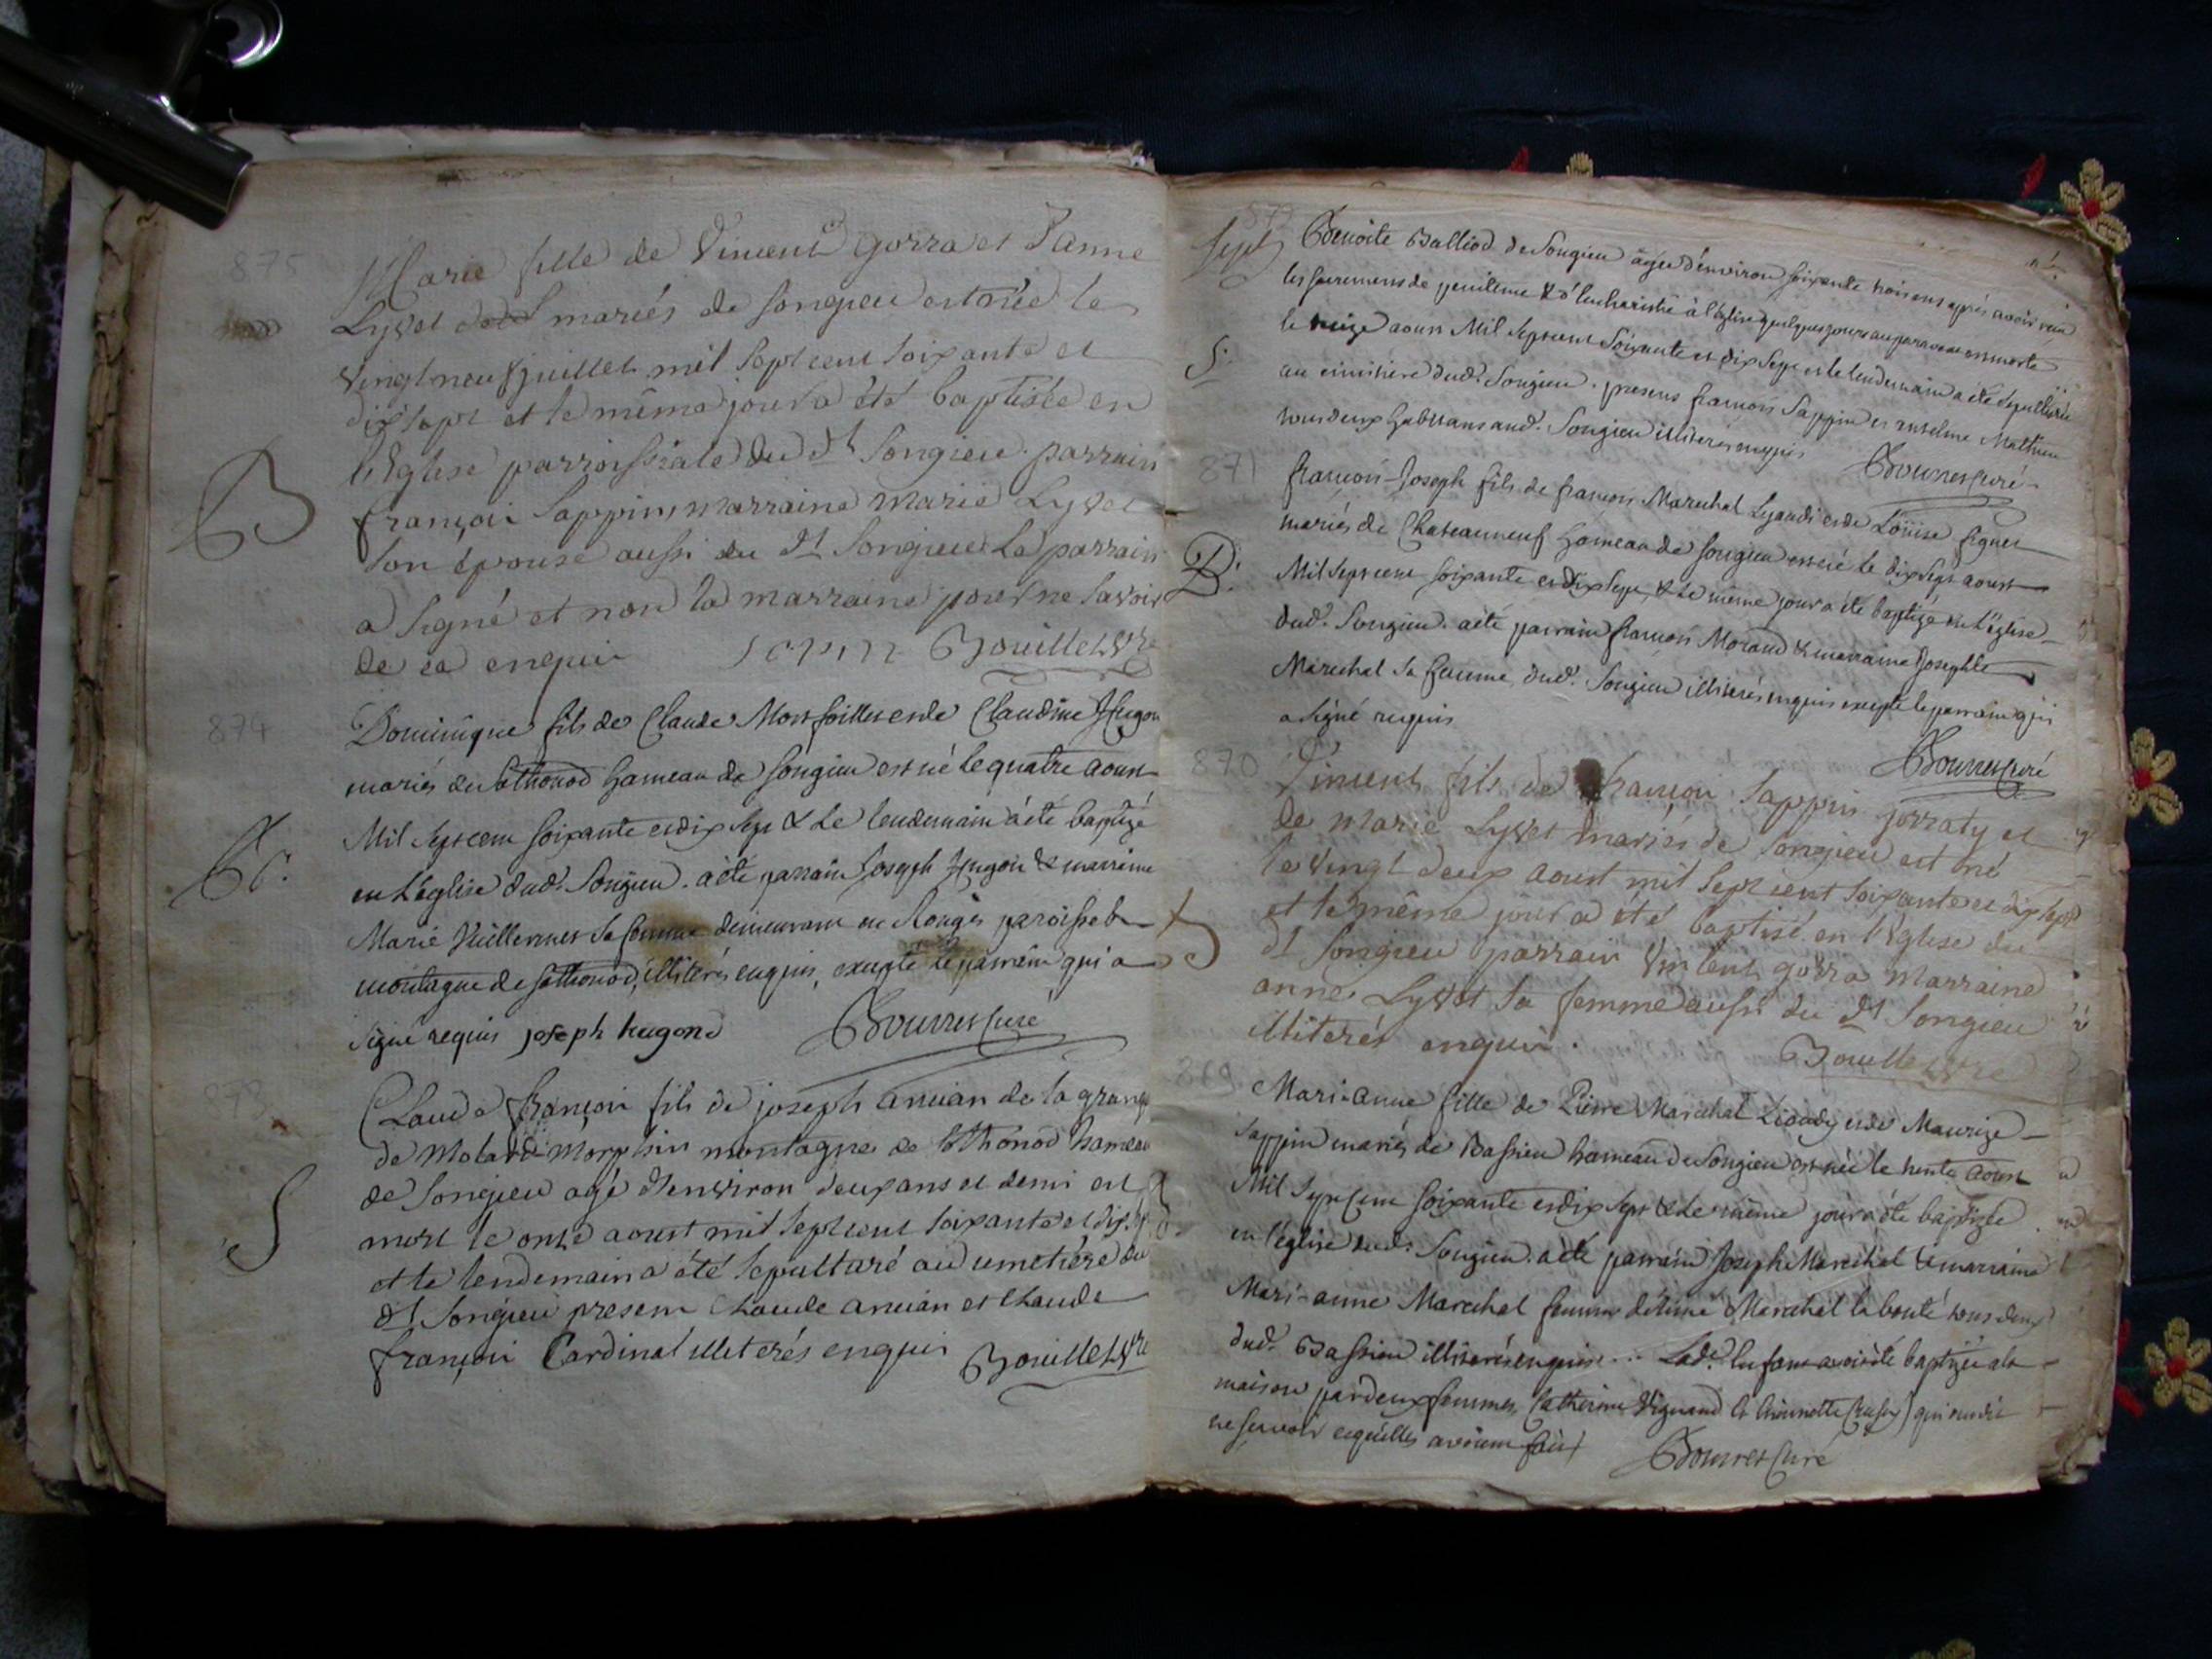 875
Marie fille de Vincent Gorra et Janne
Lyvet mariés de Songieu est née le
vingt neuf juillet mil sept cent soixante et
dix sept et le même jour a été baptisée en
l'Eglise parroissiale du dt Songieu. parrain
B
françoi Sappin, marraine Marie Lyvet
son épouse aussi du dt Songieu Le parrain
a signé et non la marraine pour ne savoir
de ce enquis Sapin Bouillet vre
874
Dominique fils de Claude Monfoillet et de Claudine Hugon
mariés de Sothonod hameau de Songieu est né le quatre aoust
Mil Sept cent soixante et dix Sept & Le lendemain a été baptizé
B.
en L'église dud. Songieu. a été parrain Joseph Hugon & marraine
Marie Vuillermet sa femme demeurant en paroisse
montagne de Sothonod, illiterés enquis, excepté le parrain qui a
signé requis joseph hugond Bourret Curé
873
Claude françoi fils de joseph ancian de la grange
de Molard-Morphin montagne de Sothonod hameau
S
de Songieu agé d'environ deux ans et demi est
mort le onze aoust mil sept cent soixante et dix sept
et le lendemain a été sepulturé au cimetière du
dt Songieu present Claude ancian et Claude
françoi Cardinal illiterés enquis Bouillet vre
872
Sept
Benoite Balliod de Songieu agée d'environ soixante trois ans après avoir reçu
les sacremens de penitence & d'Eucharistie à l'église quelques jours auparavant est morte
le treize aoust Mil Sept cent Soixante et dix Sept et le lendemain a été sepulturée
S.
au cimitière dud. Songieu. presens françois Sappin et anselme Mathieu
tous deux habitans aud. Songieu illiterés enquis Bourret curé
871
françois-Joseph fils de françois Marechal Lyaudi et de Loüise figuet
mariés de Chateauneuf hameau de Songieu est né le dix sept aoust
B.
Mil Sept cent soixante et dix Sept, & Le même jour a été baptizé en L'église
dud. Songieu. a été parrain françois Morand & marraine Josephte
Marechal sa femme, dud. Songieu illiterés enquis excepté le parrain qui
a signé requis Bourret Curé
870
Vincent fils de françoi Sappin gorraty et
de marie Lyvet mariés de Songieu est né
le vingt deux aoust mil sept cent soixante et dix sept
et le même jour a été baptisé en l'Eglise du
dt Songieu parrain Vincent gorra Marraine
anne Lyvet sa femme aussi du dt Songieu
illiterés enquis. Bouillet vre
869
Mari-anne fille de Pierre Marechal Liaudy et de Maurize
Sappin mariés de Bassieu hameau de Songieu est née le trente aoust
Mil Sept Cent soixante et dix Sept & Le même jour a été baptizée
en l'église dud. Songieu. a été parrain Joseph Marechal & marraine
Mari-anne Marechal femme Marechal tous deux
dud. Bassieu illiterés enquis... Lad. Enfant avoit été baptizée à la
maison par deux femmes, Catherine Vignand & qui ont dit
ne sçavoir ce qu'elles avoient fait Bourret Curé